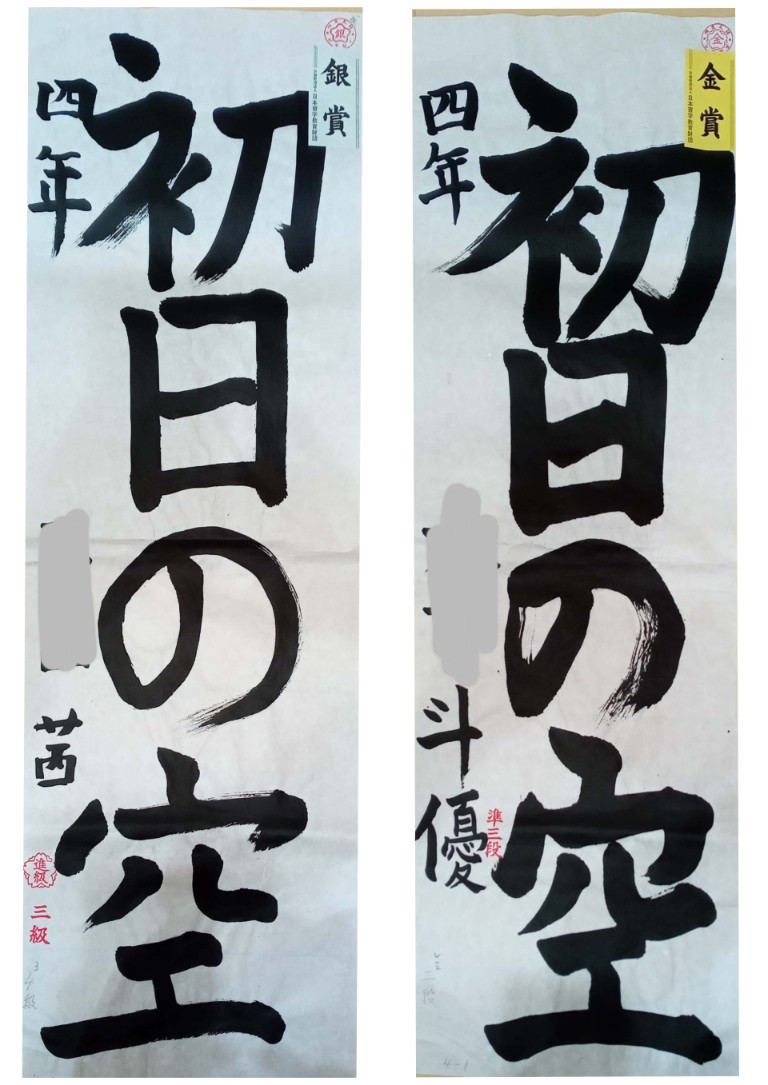 初日の空
四年
茜
銀賞
日本習字教育財団
銀
進級
三級
初日の空
四年
斗優
金賞
日本習字教育財団
金
準三段
4-1